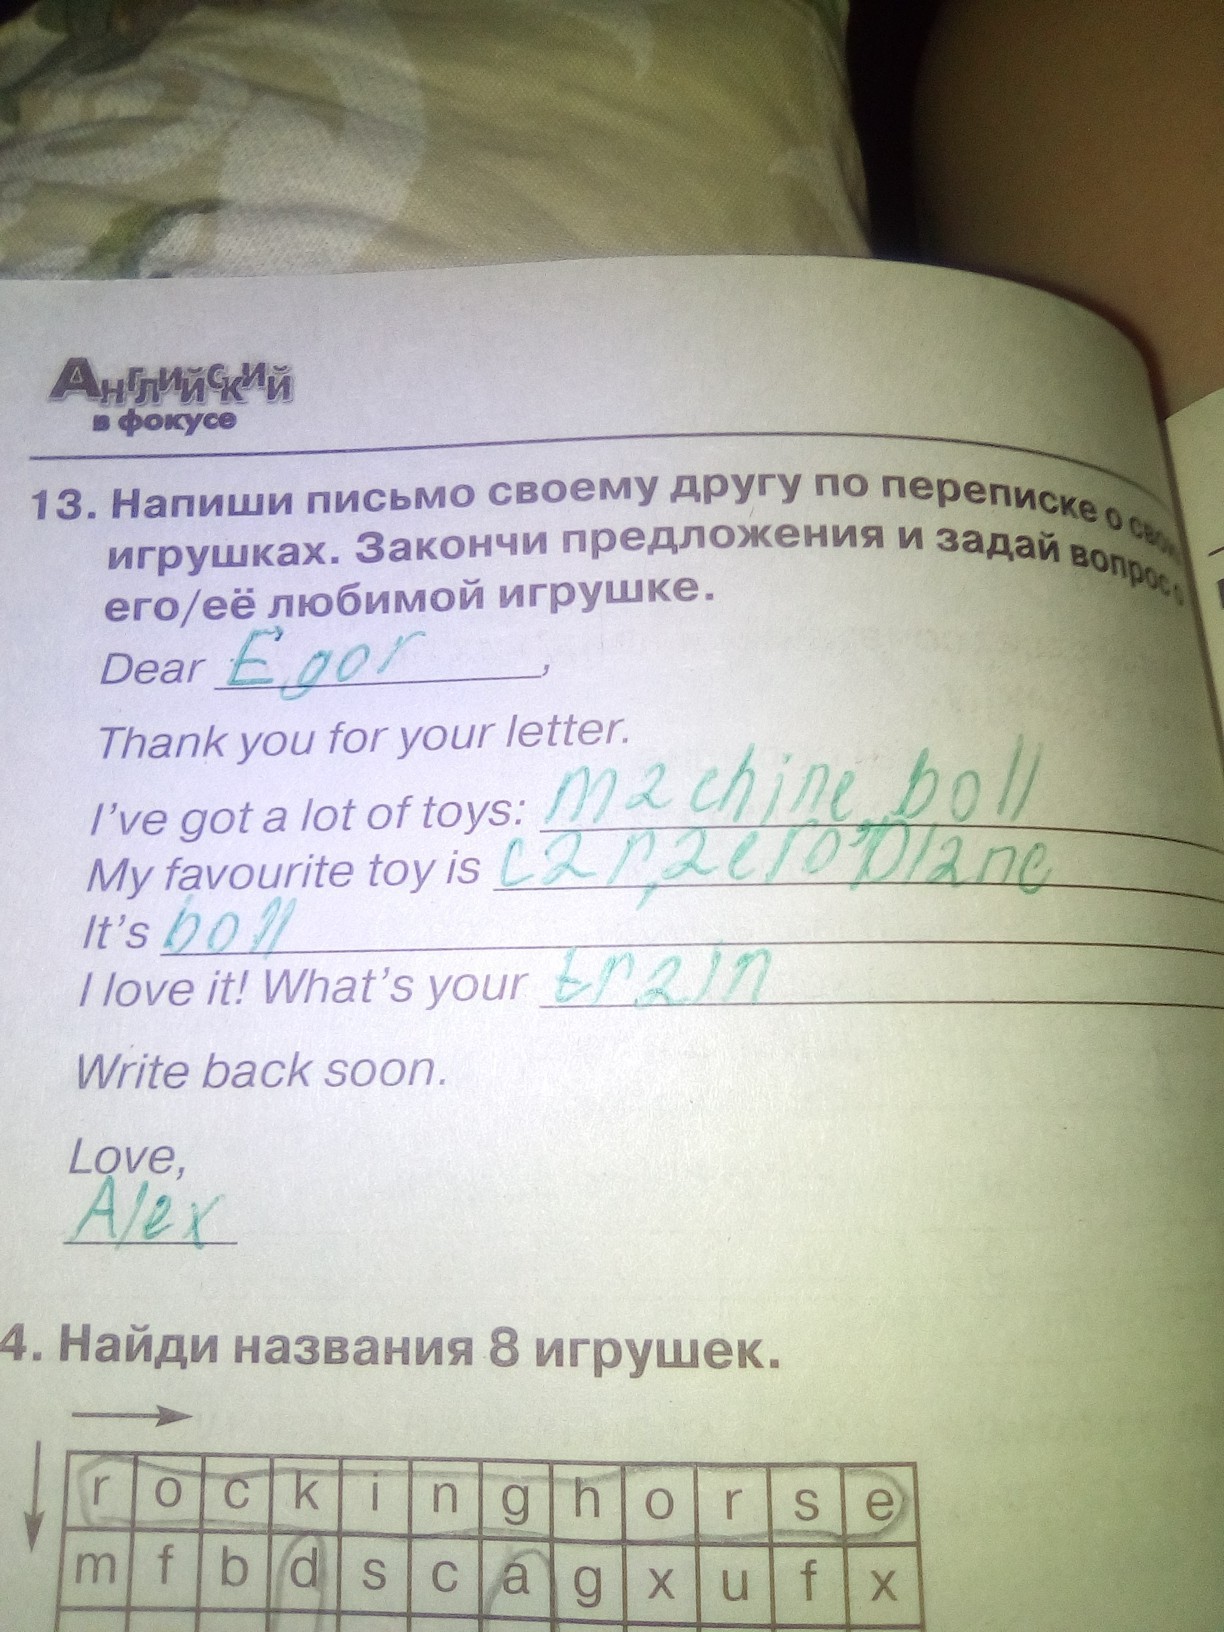 Английский
в фокусе
13. Напиши письмо своему другу по переписке о свои
игрушках. Закончи предложения и задай вопрос о
его/её любимой игрушке.
Dear Egor,
Thank you for your letter.
I've got a lot of toys: machine boll
My favourite toy is car, aeroplane
It's boll
I love it! What's your train
Write back soon.
Love,
Alex
4. Найди названия 8 игрушек.
r o c k i n g h o r s e
m f b d s c a g x u f x